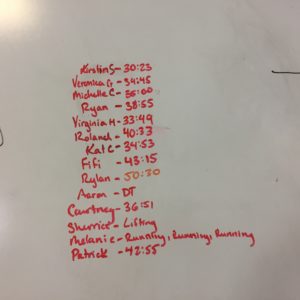 Kirstin S - 30:23
Veronica G - 34:45
Michelle C - 35:00
Ryan - 38:55
Virginia H - 33:49
Roland - 40:33
Kat C - 34:53
Fifi - 43:15
Rylan - 50:30
Aaron - DT
Courtney - 36:51
Sherrice - Lifting
Melanie - Running, Running, Running
Patrick - 42:55